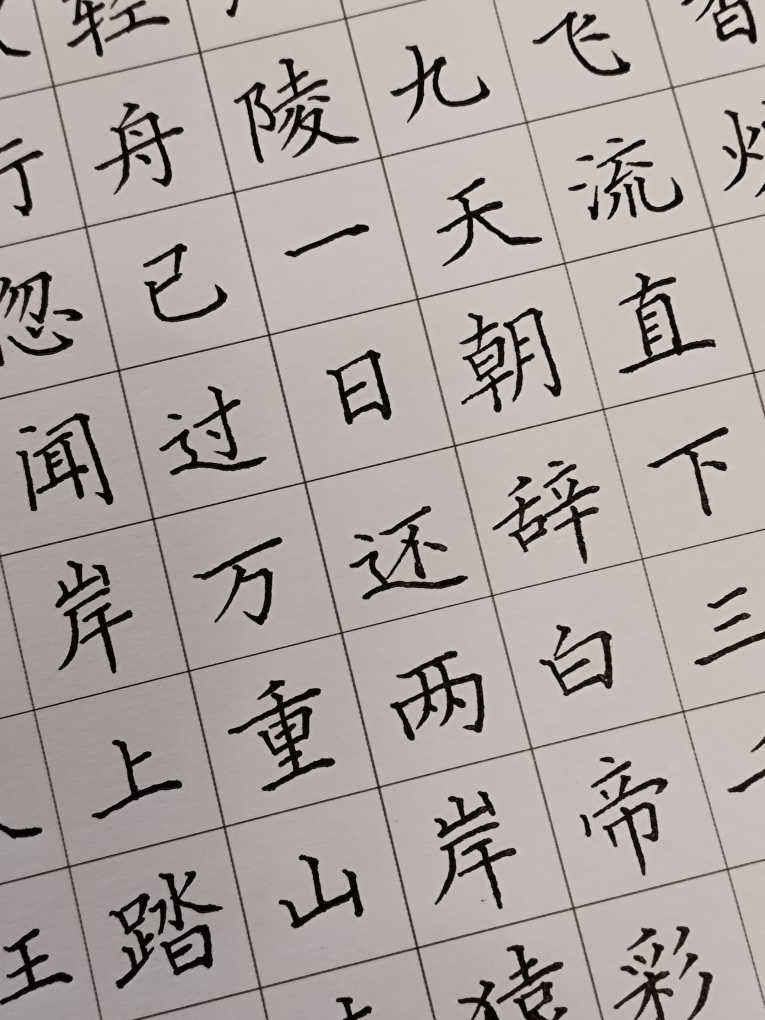 飞流直下三
九天朝辞白帝彩
陵一日还两岸猿
轻舟已过万重山
行忽闻岸上踏